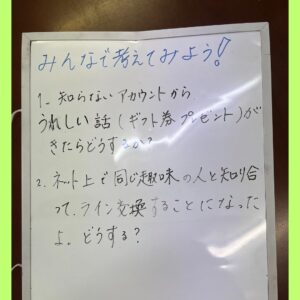 みんなで考えてみよう!
1. 知らないアカウントから
うれしい話(ギフト券プレゼント)が
きたらどうするか?
2. ネット上で同じ趣味の人と知り合
って、ライン交換することになった
よ。どうする?